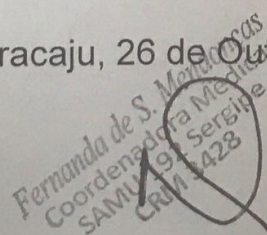 racaju, 26 de Ou
Fernanda de S. Mendonças
Coordenadora Médica
SAMU 192 Sergipe
CRM 3428